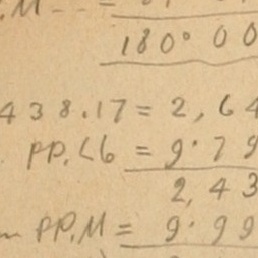 .M - - =
180° 00
438.17 = 2,64
PP. C6 = 9.79
2,43
PP.M = 9.99